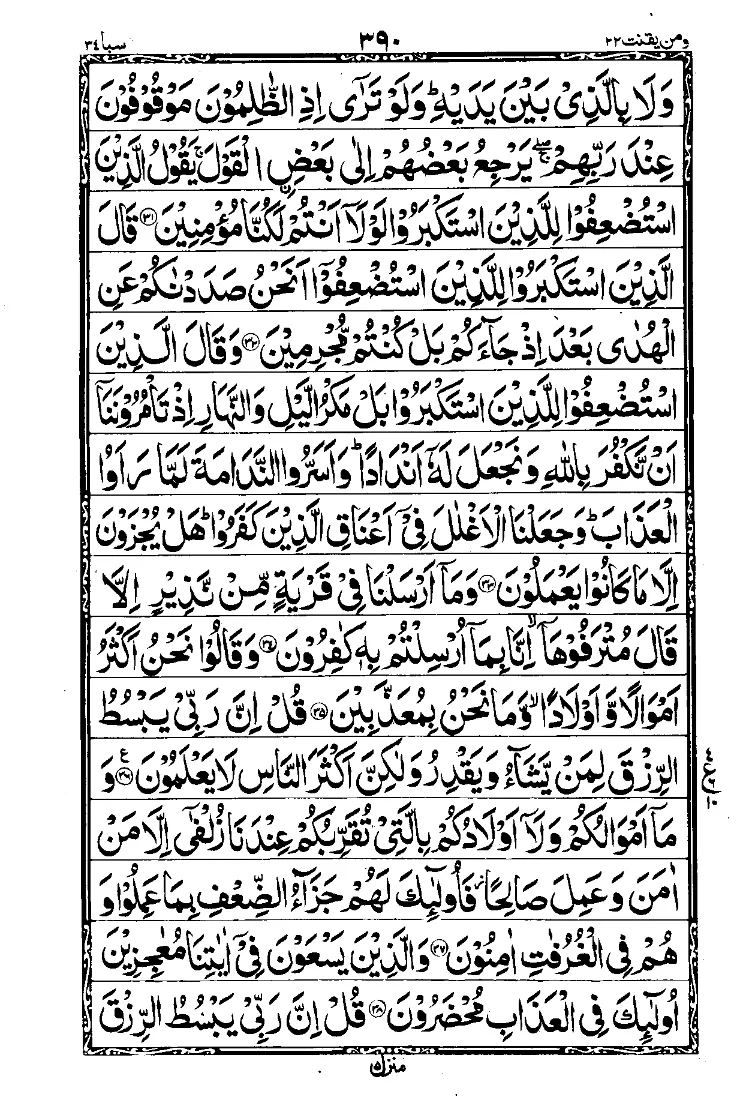 ومن یقنت ۲۲ ۳۹۰ سبا ۳۴
وَلَا بِالَّذِیْ بَیْنَ یَدَیْهِ ؕ وَلَوْ تَرٰۤی اِذِ الظّٰلِمُوْنَ مَوْقُوْفُوْنَ
عِنْدَ رَبِّهِمْ ۖۚ یَرْجِعُ بَعْضُهُمْ اِلٰی بَعْضِ ۨالْقَوْلَ ۚ یَقُوْلُ الَّذِیْنَ
اسْتُضْعِفُوْا لِلَّذِیْنَ اسْتَكْبَرُوْا لَوْلَاۤ اَنْتُمْ لَكُنَّا مُؤْمِنِیْنَ ﴿۳۱﴾ قَالَ
الَّذِیْنَ اسْتَكْبَرُوْا لِلَّذِیْنَ اسْتُضْعِفُوْۤا اَنَحْنُ صَدَدْنٰكُمْ عَنِ
الْهُدٰی بَعْدَ اِذْ جَآءَكُمْ بَلْ كُنْتُمْ مُّجْرِمِیْنَ ﴿۳۲﴾ وَقَالَ الَّذِیْنَ
اسْتُضْعِفُوْا لِلَّذِیْنَ اسْتَكْبَرُوْا بَلْ مَكْرُ الَّیْلِ وَالنَّهَارِ اِذْ تَاْمُرُوْنَنَاۤ
اَنْ نَّكْفُرَ بِاللّٰهِ وَنَجْعَلَ لَهٗۤ اَنْدَادًا ؕ وَاَسَرُّوا النَّدَامَةَ لَمَّا رَاَوُا
الْعَذَابَ ؕ وَجَعَلْنَا الْاَغْلٰلَ فِیْۤ اَعْنَاقِ الَّذِیْنَ كَفَرُوْا ؕ هَلْ یُجْزَوْنَ
اِلَّا مَا كَانُوْا یَعْمَلُوْنَ ﴿۳۳﴾ وَمَاۤ اَرْسَلْنَا فِیْ قَرْیَةٍ مِّنْ نَّذِیْرٍ اِلَّا
قَالَ مُتْرَفُوْهَاۤ ۙ اِنَّا بِمَاۤ اُرْسِلْتُمْ بِهٖ كٰفِرُوْنَ ﴿۳۴﴾ وَقَالُوْا نَحْنُ اَكْثَرُ
اَمْوَالًا وَّاَوْلَادًا ۙ وَّمَا نَحْنُ بِمُعَذَّبِیْنَ ﴿۳۵﴾ قُلْ اِنَّ رَبِّیْ یَبْسُطُ
الرِّزْقَ لِمَنْ یَّشَآءُ وَیَقْدِرُ وَلٰكِنَّ اَكْثَرَ النَّاسِ لَا یَعْلَمُوْنَ ﴿۳۶﴾ ع وَ
مَاۤ اَمْوَالُكُمْ وَلَاۤ اَوْلَادُكُمْ بِالَّتِیْ تُقَرِّبُكُمْ عِنْدَنَا زُلْفٰۤی اِلَّا مَنْ
اٰمَنَ وَعَمِلَ صَالِحًا ؗ فَاُولٰٓئِكَ لَهُمْ جَزَآءُ الضِّعْفِ بِمَا عَمِلُوْا وَ
هُمْ فِی الْغُرُفٰتِ اٰمِنُوْنَ ﴿۳۷﴾ وَالَّذِیْنَ یَسْعَوْنَ فِیْۤ اٰیٰتِنَا مُعٰجِزِیْنَ
اُولٰٓئِكَ فِی الْعَذَابِ مُحْضَرُوْنَ ﴿۳۸﴾ قُلْ اِنَّ رَبِّیْ یَبْسُطُ الرِّزْقَ
منزل ۵